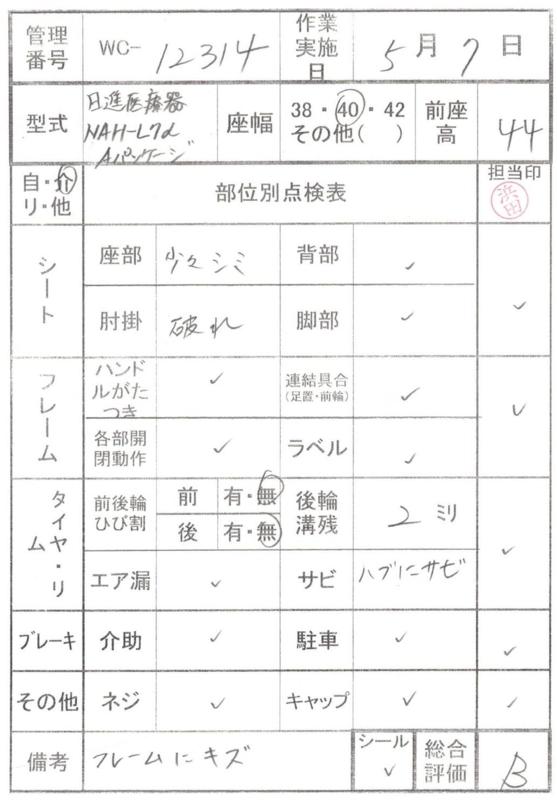 管理番号 WC- 12314 作業実施日 5月7日
型式 日進医療器 NAH-L7α Aパッケージ 座幅 38・40・42 その他( ) 前座高 44
自・介 リ・他 部位別点検表 担当印 浜田
シート 座部 少々シミ 背部 ✓ ✓
肘掛 破れ 脚部 ✓
フレーム ハンドルがたつき ✓ 連結具合(足置・前輪) ✓ ✓
各部開閉動作 ✓ ラベル ✓
タイヤ・リム 前後輪ひび割 前 有・無 後輪溝残 2ミリ ✓
後 有・無
エア漏 ✓ サビ ハブにサビ
ブレーキ 介助 ✓ 駐車 ✓ ✓
その他 ネジ ✓ キャップ ✓ ✓
備考 フレームにキズ シール ✓ 総合評価 B